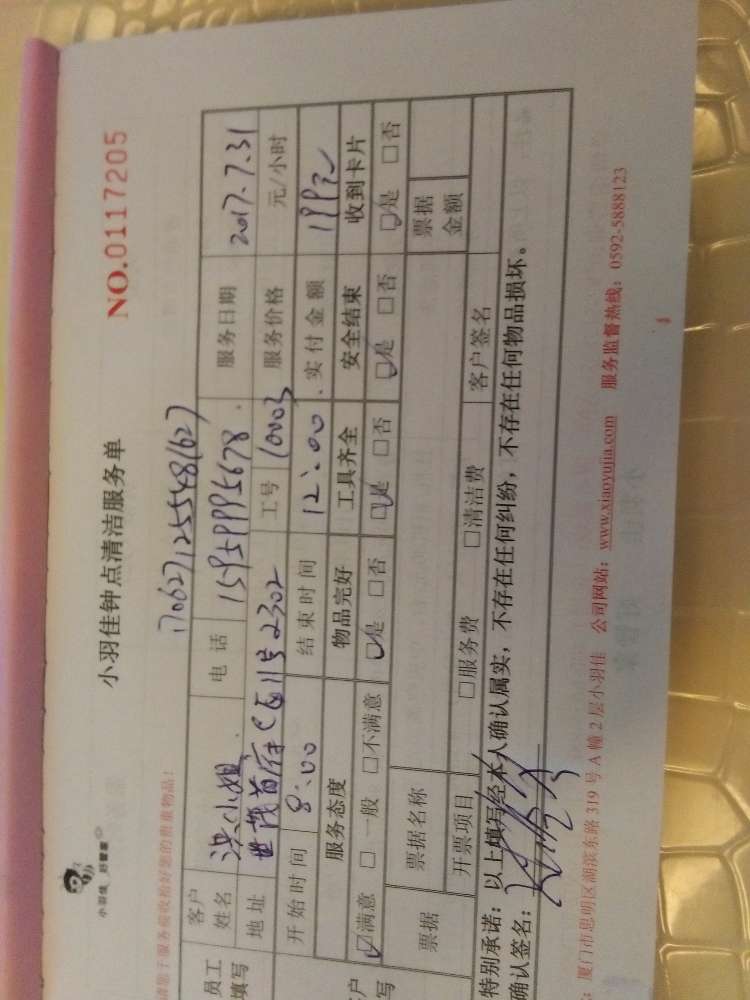 小羽佳 好管家
小羽佳钟点清洁服务单
NO.0117205
1706271255481627
客户姓名 洪小姐 电话 15959995678 服务日期 2017.7.31
员工填写
地址 世茂首府C区11号2302 工号 10003 服务价格 元/小时
开始时间 8:00 结束时间 12:00 实付金额 199元
服务态度 物品完好 工具齐全 安全结束 收到卡片
☑满意 □一般 □不满意 ☑是 □否 ☑是 □否 ☑是 □否 ☑是 □否
票据 票据名称 票据金额
开票项目 □服务费 □清洁费 客户签名
特别承诺：以上填写经本人确认属实，不存在任何纠纷，不存在任何物品损坏。
确认签名：
厦门市思明区湖滨东路319号A幢2层小羽佳 公司网站：www.xiaoyujia.com 服务监督热线：0592-5888123